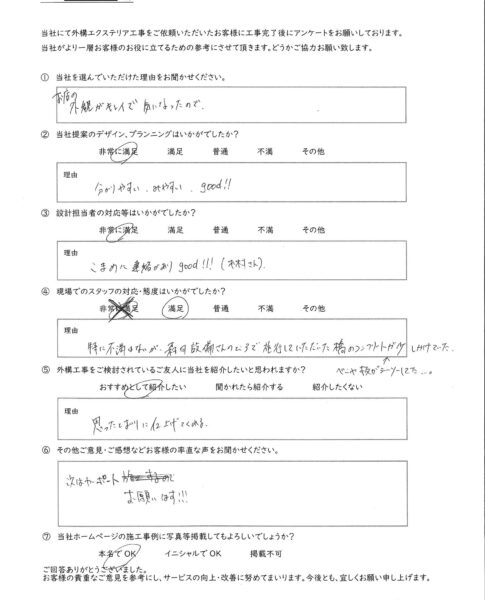 当社にて外構エクステリア工事をご依頼いただいたお客様に工事完了後にアンケートをお願いしております。
当社がより一層お客様のお役に立てるための参考にさせて頂きます。どうかご協力お願い致します。
① 当社を選んでいただけた理由をお聞かせください。
お店の
外観がキレイで 気になったので。
② 当社提案のデザイン、プランニングはいかがでしたか？
非常に満足 満足 普通 不満 その他
理由
分かりやすい、みやすい、good!!
③ 設計担当者の対応等はいかがでしたか？
非常に満足 満足 普通 不満 その他
理由
こまめに連絡があり good!!! (木村さん)
④ 現場でのスタッフの対応・態度はいかがでしたか？
非常に満足 満足 普通 不満 その他
理由
特に不満はないが、 設備さんのところで 施行していただいた 橋のコンクリートが少しかけてた。
⑤ 外構工事をご検討されているご友人に当社を紹介したいと思われますか？
ベニヤ板が
おすすめとして紹介したい 聞かれたら紹介する 紹介したくない
理由
思ったとおりに仕上げてくれる。
⑥ その他ご意見・ご感想などお客様の率直な声をお聞かせください。
次はカーポート
お願いします!!!
⑦ 当社ホームページの施工事例に写真等掲載してもよろしいでしょうか？
本名でOK イニシャルでOK 掲載不可
ご回答ありがとうございました。
お客様の貴重なご意見を参考にし、サービスの向上・改善に努めてまいります。今後とも、宜しくお願い申し上げます。